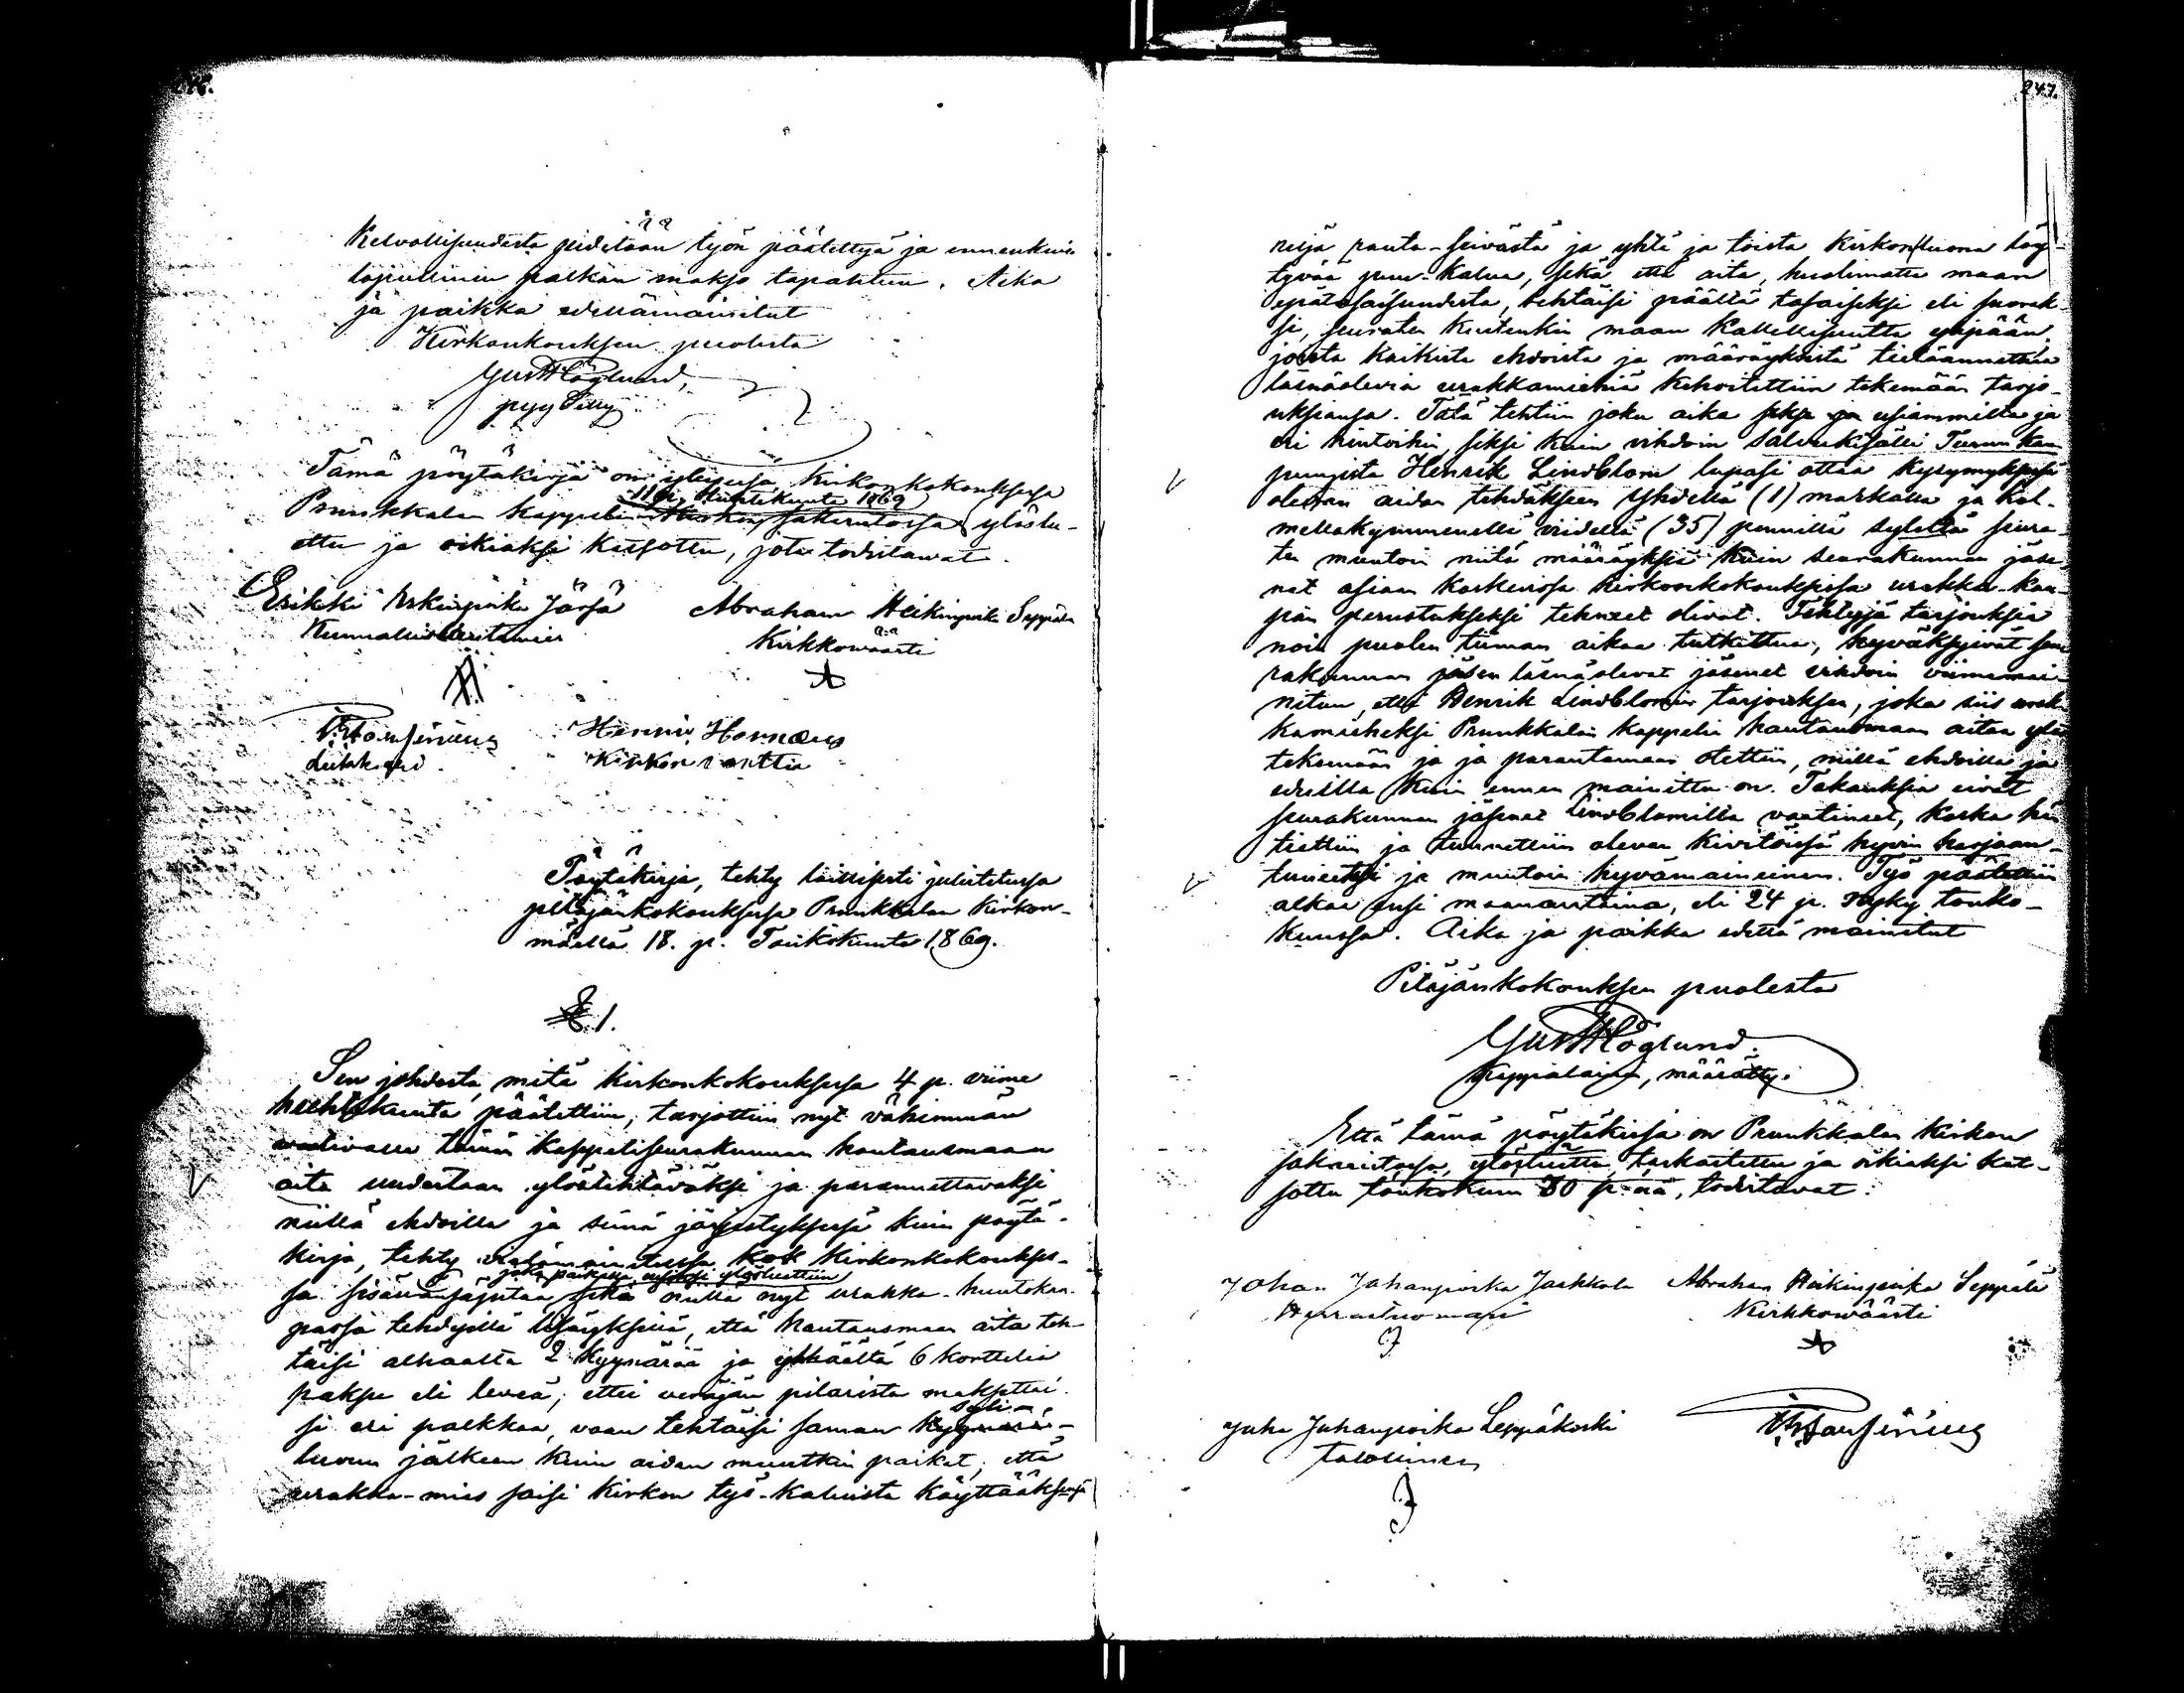 246.
Kelvollisuudesta pidetään työn päätettyä ja ennenkuin
lopullinen palkan makso tapahtuu. Aika
ja paikka edellämainitut
Kirkonkokouksen puolesta
Gust Höglund,
Tämä pöytäkirja on yleisessä kirkonkokouksessa
11 p. Huhtikuuta 1869
Prunkkalan kappelin sakaristossa ylöslu-
ettu ja oikiaksi katsottu, jota todistawat.
Erikki Erkinpoika Järsä Abraham Heikinpoika Seppälä
Kunnallislautamies Kirkkowäärti
Lukkari Kirkon vanttia
Henric Hornæus
Pöytäkirja, tehty laillisesti julistetussa
pitäjänkokouksessa Prunkkalan Kirkon-
mäellä 18. p. Toukokuuta 1869.
§ 1.
Sen johdosta, mitä kirkonkokouksessa 4 p. viime
huhtikuuta päätettiin, tarjottiin nyt vähimmän
vaativalle tämän kappeliseurakunnan hautausmaan
aita uudestaan ylöstehtäväksi ja parannettavaksi
niillä ehdoilla ja siinä järjestyksessä kuin pöytä-
kirja, tehty vialämainitussa kok kirkonkokoukses-
joka paikassa ylösluettiin
sa sisäänsäjsitaa sekä niillä nyt urakka-huutokau-
passa tehdyillä lisäyksillä, että hautausmaan aita teh-
täisi alhaalta 2 kyynärää ja ylhäältä 6 korttelia
paksu eli leveä; ettei veräjän pilarista maksettai-
syli-
si eri palkkaa, vaan tehtäisi saman kyynärä-
luvun jälkeen kuin aidan muutkin paikat; että
urakka-mies saisi kirkon työ-kaluista käyttääksensä
247.
neljä rauta-seivästä ja yhtä ja toista kirkon luona löy-
tyvää puu-kalua, sekä että aita, huolimatta maan
epätasaisuudesta, tehtäisi päältä tasaiseksi eli suorak-
si, seuraten kuitenkin maan kallellisuutta ylipään,
joista kaikista ehdoista ja määräyksistä tietäannettua
läsnäolevia urakkamiehiä kehoitettiin tekemään tarjo-
uksiansa. Tätä tehtiin joku aika seka ja usiammilta ja
eri hintoihin, siksi kuin vihdoin salvukisälli Turun kau
pungista Henrik Lindblom lupasi ottaa kysymyksessä
olevan aidan tehdäkseen yhdellä (1) markalla ja kol-
mellakymmenellä viidellä (35) pennillä syleltä seura-
ten muutoin niitä määräyksiä kuin seurakunnan jäse-
net asiaan koskevissa kirkonkokouksissa urakka-kau-
pan perustukseksi tehneet olivat. Tehtyjä tarjouksia
noin puolen tiiman aikaa tutkittua, hyväksyivät seu
rakunnan jäsen läsnäolevat jäsenet vihdoin viimemai-
nitun, eli Henrik Lindblomin tarjouksen, joka siis urak
kamieheksi Prunkkalan kappelin hautausmaan aitaa ylös
tekemään ja ja parantamaan otettiin, niillä ehdoilla ja
eduilla kuin ennen mainittu on. Takauksia eivät
seurakunnan jäsenet Lindblomilta vaatineet, koska hän
tiettiin ja tunnettiin olevan kivitöissä hyvin harjaan-
tuneeksi ja muutoin hyvämaineinen. Työ päätettiin
alkaa ensi maanantaina, eli 24 p. nyky touko-
kuussa. Aika ja paikka edellä mainitut
Pitäjänkokouksen puolesta
Gust Höglund.
Kappalainen, määrätty.
Että tämä pöytäkirja on Prunkkalan Kirkon
sakaristossa, ylösluettu, tarkastettu ja oikiaksi kat-
sottu toukokuun 30 p:nä, todistavat:
Johan Johanpoika Jaakkola Abraham Heikinpoika Seppälä
Herrastuomari Kirkkowäärti
Juha Juhanpoika Leppäkoski
talollinen